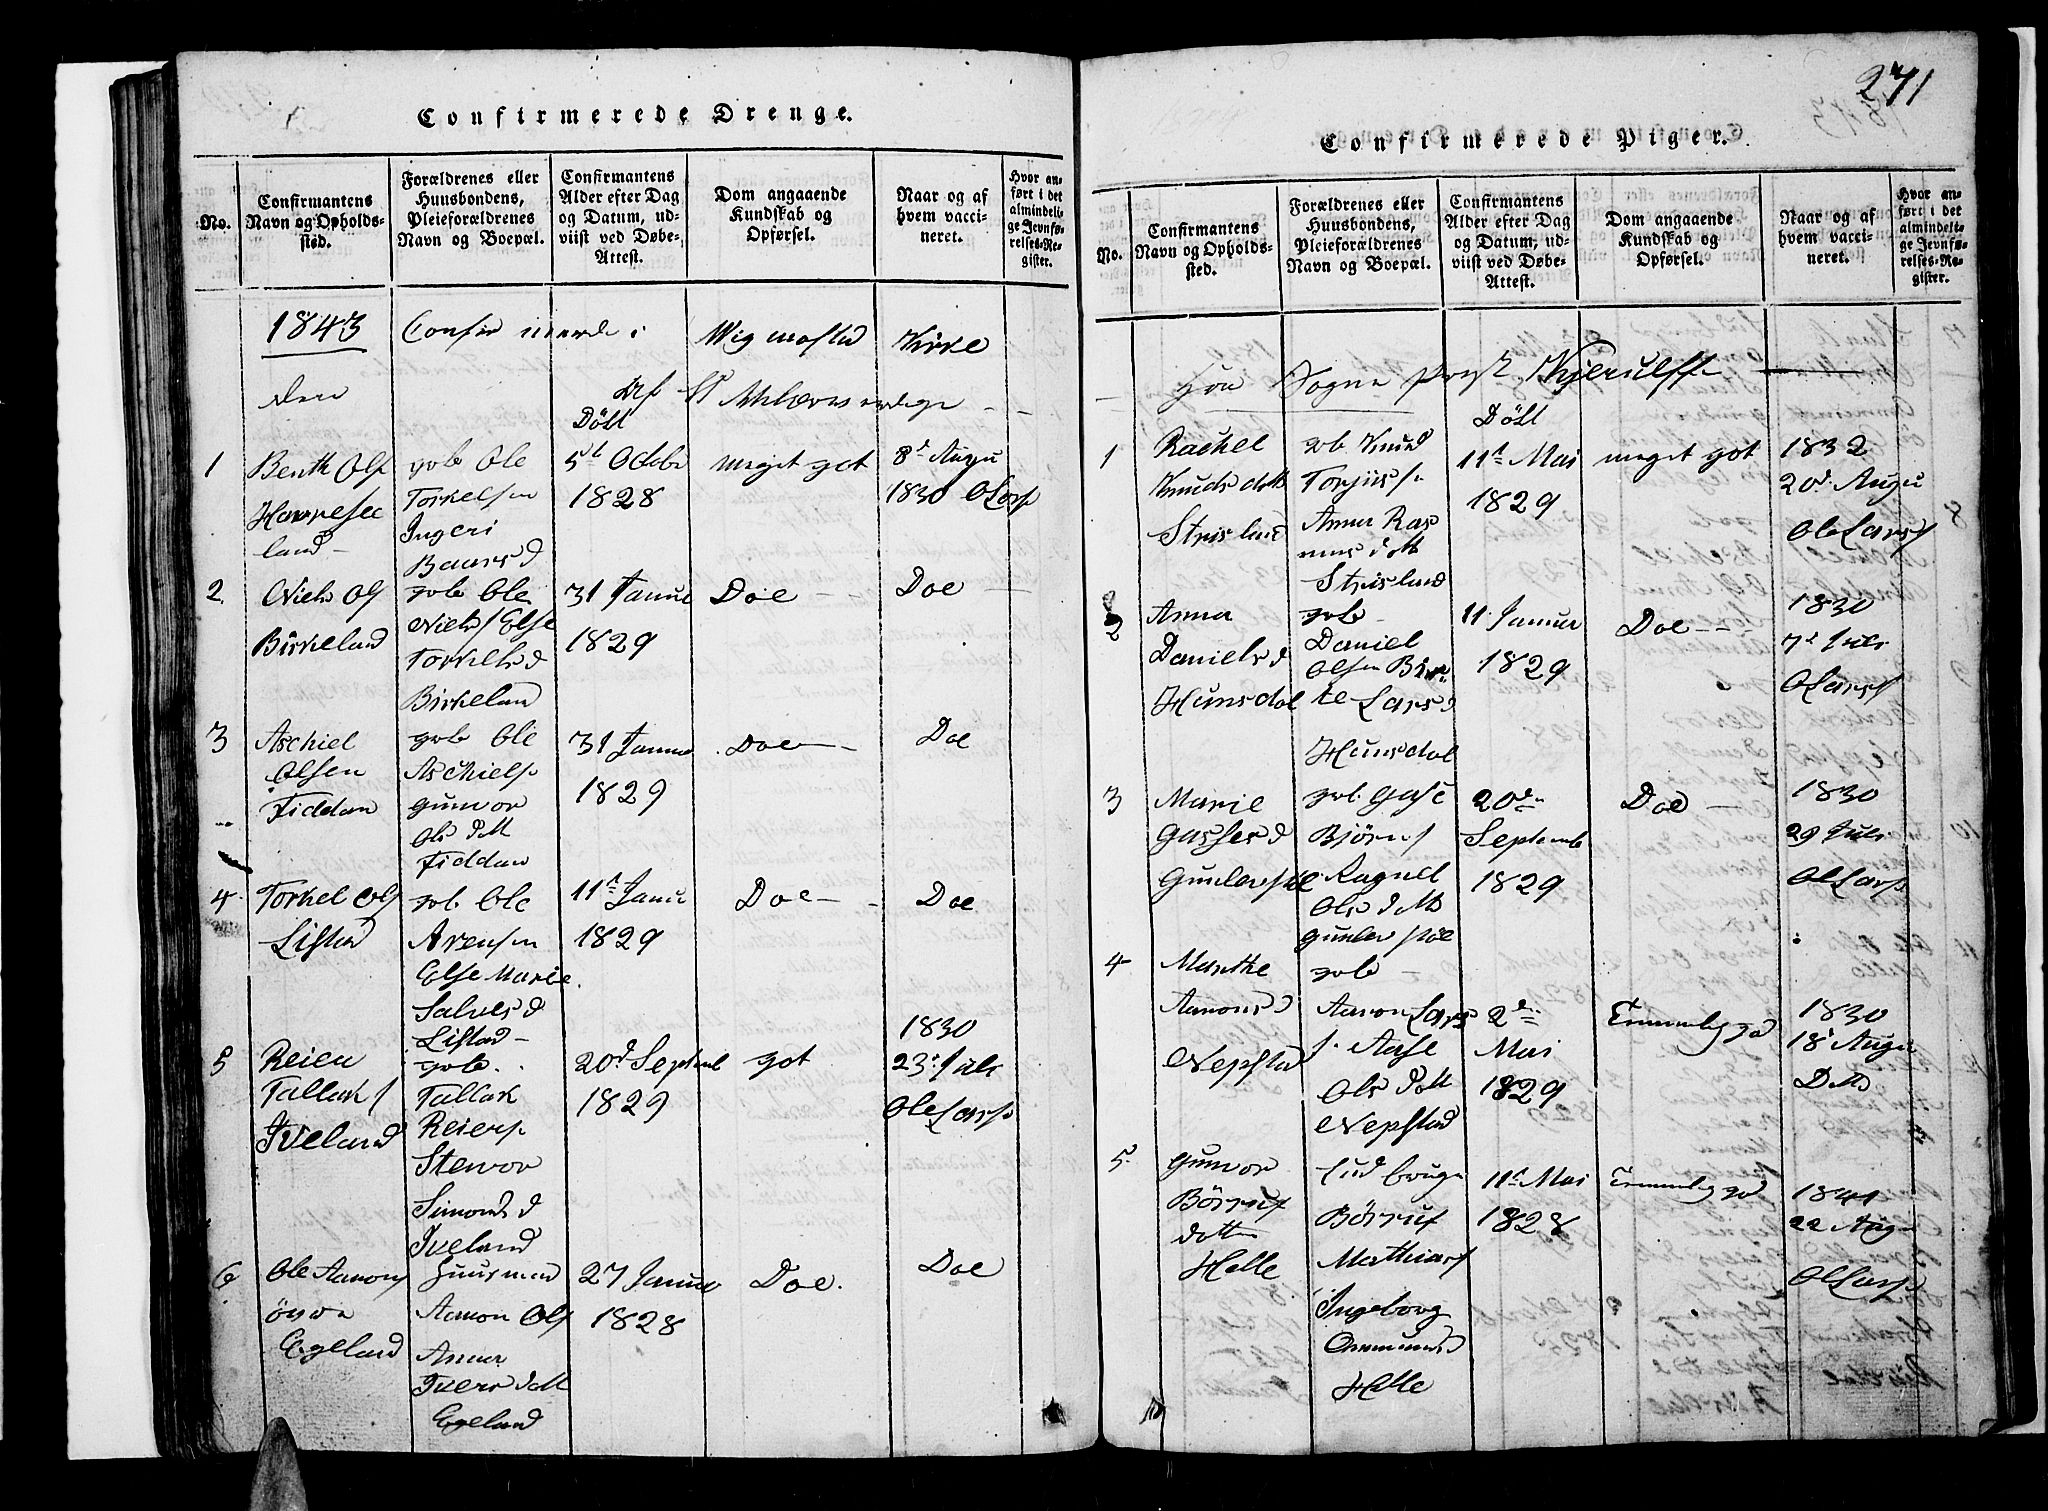 271
Confirmerede Drenge.
No.
Confirmantens Navn og Opholds-sted.
Forældrenes eller Huusbondens, Pleieforældrenes Navn og Boepæl.
Confirmantens Alder efter Dag og Datum, ud-viist ved Døbe-Attest.
Dom angaaende Kundskab og Opførsel.
Naar og af hvem vacci-neret.
Hvor an-ført i det almindeli-ge Jevnfø-relses-Re-gister.
1843 Confir merede i Wigmostad Kirke
den
Født
1
Benth Ols
Hørresee
land
gvb Ole
Torkelsen
Ingeri
Baarsd
5t Octobr
1828
meget got
8d Augu
1830 O Lars
2
Niels Ols
Birkeland
gvb Ole
Niels Else
Torkelsd
Birkelan
31 Janua
1829
Doe
Doe
3
Aschiel
Olsen
Fiddan
gvb Ole
Aschiels
gunvor
Ols dott
Fiddan
31 Janua
1829
Doe
Doe
4
Torkel Ols
Listad
gvb Ole
Arensen
Else Marie
Salvesd
Listad
11t Janua
1829
Doe
Doe
5
Reier
Tallaks
Iveland
gvb
Tallak
Reiers
Stenvor
Simonsd
Iveland
20d Septemb
1829
got
1830
23d Juli
Ole Lars
6
Ole Aarons
øvre
Egeland
Huusmand
Aanon Ols
Anna
Ivers dott
Egeland
27 Janua
1828
Doe.
Doe
Confirmerede Piger.
No.
Confirmantens Navn og Opholds-sted.
Forældrenes eller Huusbondens, Pleieforældrenes Navn og Boepæl.
Confirmantens Alder efter Dag og Datum, ud-viist ved Døbe-Attest.
Dom angaaende Kundskab og Opførsel.
Naar og af hvem vacci-neret.
Hvor an-ført i det almindeli-ge Jevnfø-relses-Re-gister.
Hrr Sogne Prest Kjerulff
Født
1
Rachel
Knuds dott
Strisland
gvb Knud
Torjus
Anna Ras
mus dott
Strisland
11t Mai
1829
meget got
1832
20d Augu
Ole Lars
2
Anna
Daniels d
Hunsdal
gvb
Daniel
Olsen Bir
te Larsd
Hunsdal
11 Janua
1829
Doe
1830
7d Juli
O Lars
3
Marie
Gasses d
Gunlefstøl
gvb Gase
Bjørns
Ragnel
Ols dott
20de
September
1829
Doe
1830
29 Juli
Ol Lars
4
Marthe
Aanons d
Nepstad
gvb
Aanon Lars
Aase
Ols dott
Nepstad
2den
Mai
1829
Temmelig god
1830
18d Augu
Ditto
5
Gunvor
Børruf
dotter
Helle
Børruf
Mathias
Ingeborg
Ommunds d
Helle
11t Mai
1828
Temmelig god
1841
22 Augu
Ol Lars